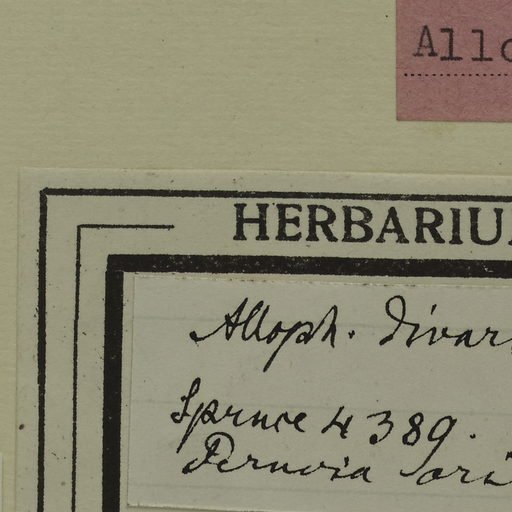 Allo
HERBARIU
Alloph. divar
Spruce 4389.
Peruvia ori